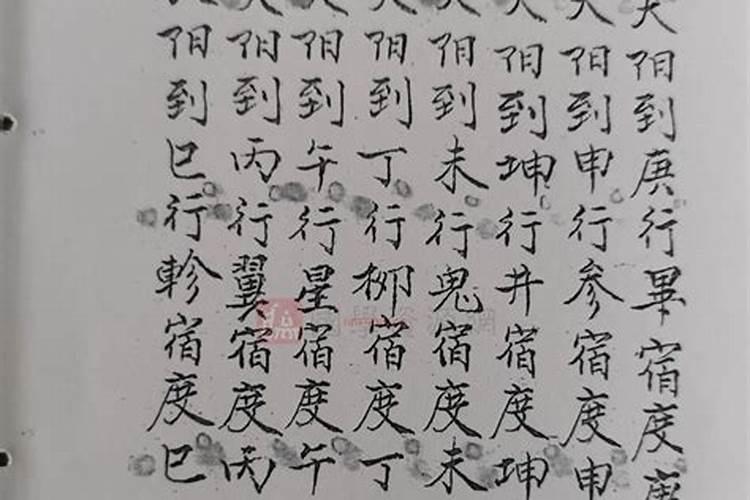 太阳到庚行畢宿度庚
太阳到申行参宿度申
太阳到坤行井宿度坤
太阳到未行鬼宿度未
太阳到丁行柳宿度丁
太阳到午行星宿度午
太阳到丙行翼宿度丙
阳到巳行軫宿度巳